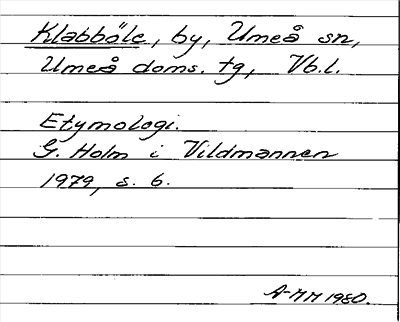 Klabböle, by, Umeå sn,
Umeå doms. tg, Vb.l.
Etymologi.
G. Holm i Vildmannen
1979, s. 6.
A-MM 1980.